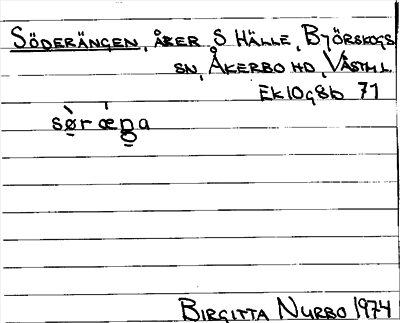 SÖDERÄNGEN, ÅKER S HÄLLE, BJÖRSKOGS
SN, ÅKERBO HD, VÄSTML
EK 10g8b 71
sø̀r ǽŋa
BIRGITTA NURBO 1974